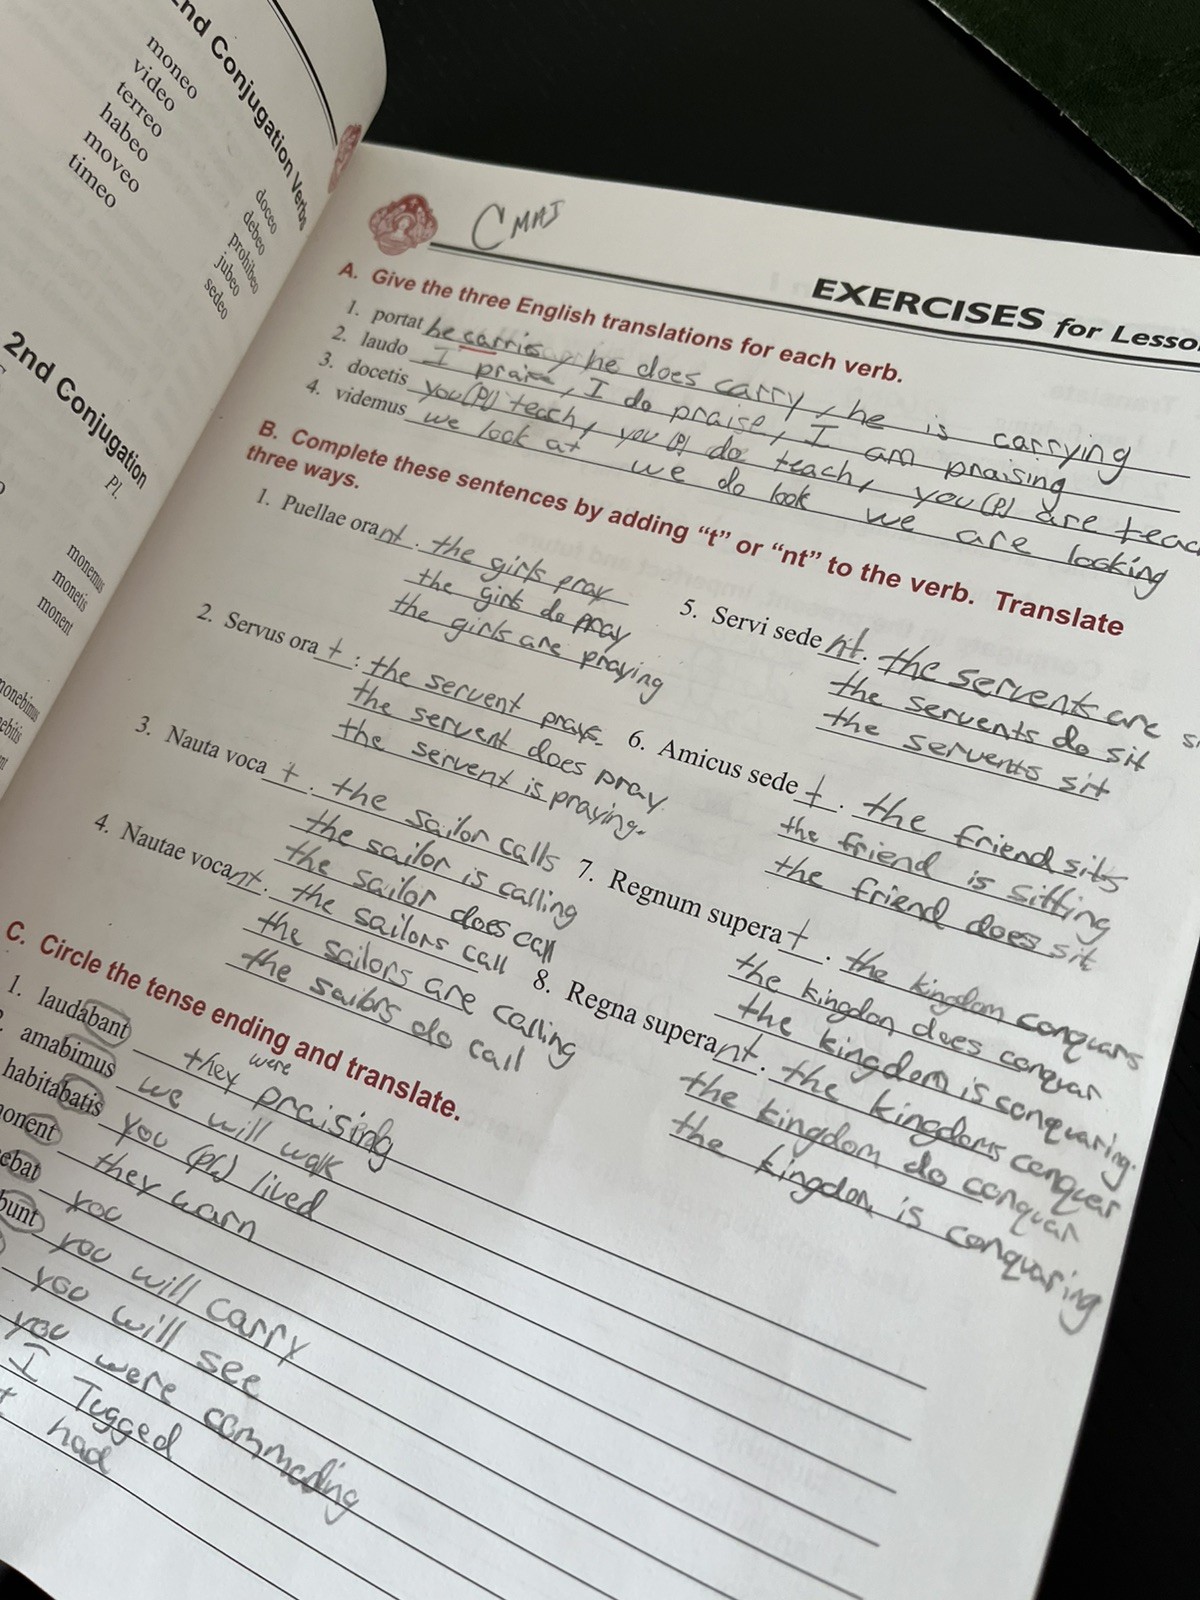 2nd Conjugation Verbs
moneo
video
terreo
habeo
moveo
timeo
doceo
debeo
prohibeo
jubeo
sedeo
2nd Conjugation
Pl.
monemus
monetis
monent
CMMJ
EXERCISES for Lesso
A. Give the three English translations for each verb.
1. portat he carries, he does carry, he is carrying
2. laudo I praise, I do praise, I am praising
3. docetis you(Pl) teach, you (P) do teach, you(P) are teac
4. videmus we look at we do look we are looking
B. Complete these sentences by adding “t” or “nt” to the verb. Translate
three ways.
1. Puellae orant. the girls pray
the girls do pray
the girls are praying
2. Servus ora t : the servent prays.
the servent does pray
the servent is praying.
3. Nauta voca t. the sailor calls
the sailor is calling
the sailor does call
4. Nautae vocant. the sailors call
the sailors are calling
the sailors do call
5. Servi sede nt. the servents are si
the servents do sit
the servents sit
6. Amicus sede t. the friend sits
the friend is sitting
the friend does sit
7. Regnum supera t. the kingdom conquars
the kingdon does conquar
the kingdom is conquaring.
8. Regna superant. the kingdoms conquer
the kingdom do conquar
the kingdom is conquaring
C. Circle the tense ending and translate.
1. laudabant they were praising
amabimus we will walk
habitabatis you (PL) lived
onent they warn
ebat you
bunt you will carry
you will see
you were commeding
I Tugged
had